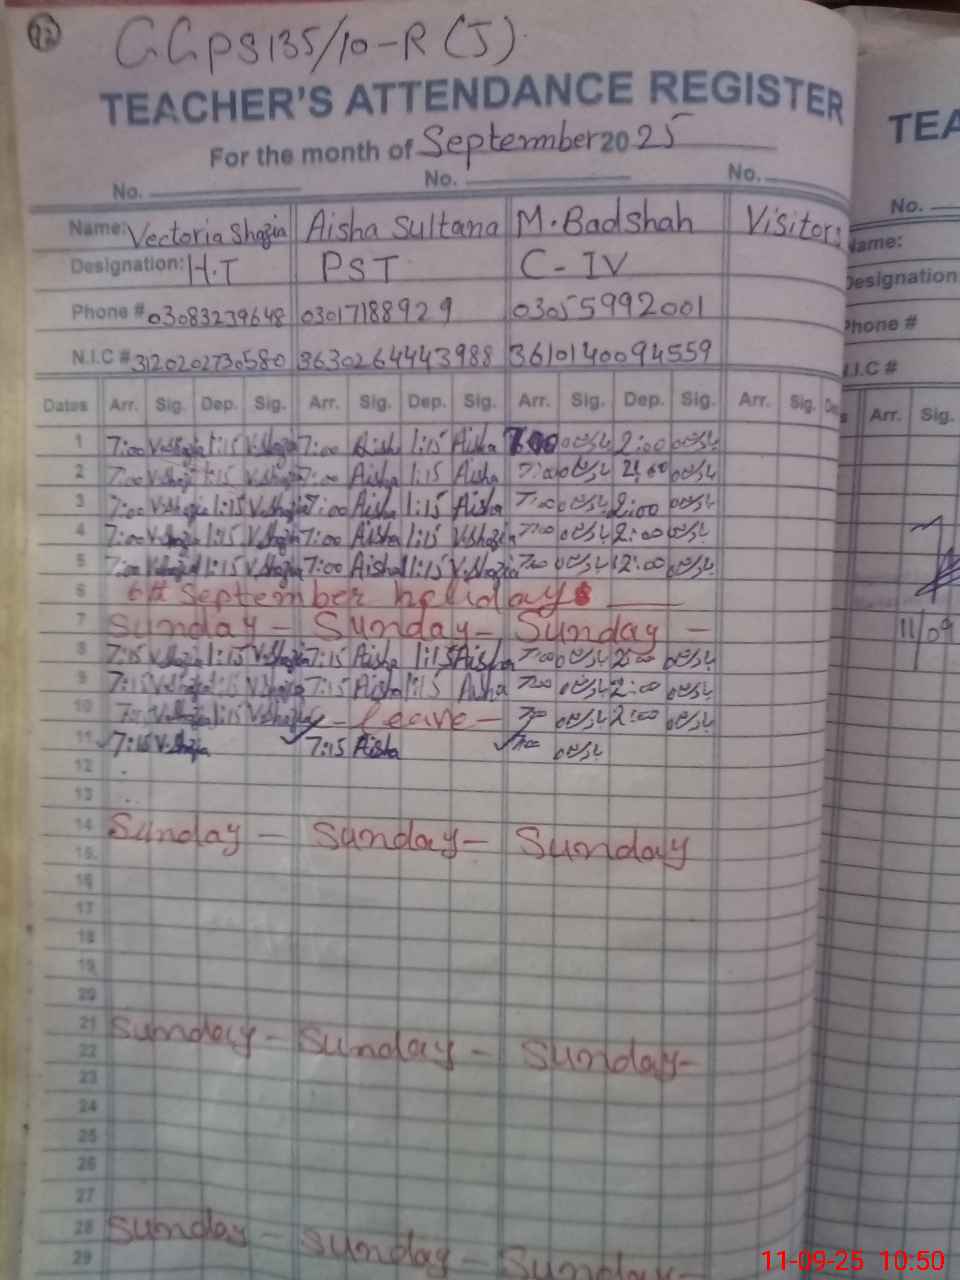 12
GGPS 135/10-R (J)
TEACHER'S ATTENDANCE REGISTER
For the month of September 2025
No. No. No.
Name: Vectoria Shazia Aisha Sultana M. Badshah Visitors
Designation: H.T PST C-IV
Phone # 03083239648 03017188929 03055992001
N.I.C # 3120202730580 3630264443988 3610140094559
Dates Arr. Sig. Dep. Sig. Arr. Sig. Dep. Sig. Arr. Sig. Dep. Sig. Arr. Sig.
1 7:00 V.Shazia 1:15 V.Shazia 7:00 Aisha 1:15 Aisha 7:00 2:00
2 7:00 V.Shazia 1:15 V.Shazia 7:00 Aisha 1:15 Aisha 7:00 2:00
3 7:00 V.Shazia 1:15 V.Shazia 7:00 Aisha 1:15 Aisha 7:00 2:00
4 7:00 V.Shazia 1:15 V.Shazia 7:00 Aisha 1:15 V.Shazia 7:00 2:00
5 7:00 V.Shazia 1:15 V.Shazia 7:00 Aisha 1:15 V.Shazia 7:00 2:00
6 6th September holiday
7 Sunday - Sunday - Sunday -
8 7:15 V.Shazia 1:15 V.Shazia 7:15 Aisha 1:15 Aisha 7:00 2:00
9 7:15 V.Shazia 1:15 V.Shazia 7:15 Aisha 1:15 Aisha 7:00 2:00
10 V.Shazia 1:15 V.Shazia - Leave - 7:00 2:00
11 7:15 V.Shazia 7:15 Aisha 7:00
12
13
14 Sunday - Sunday - Sunday
15
16
17
18
19
20
21 Sunday - Sunday - Sunday -
22
23
24
25
26
27
28 Sunday - Sunday - Sunday -
29
TEA
No.
Name:
Designation
Phone #
N.I.C #
Arr. Sig.
11/09
11-09-25 10:50